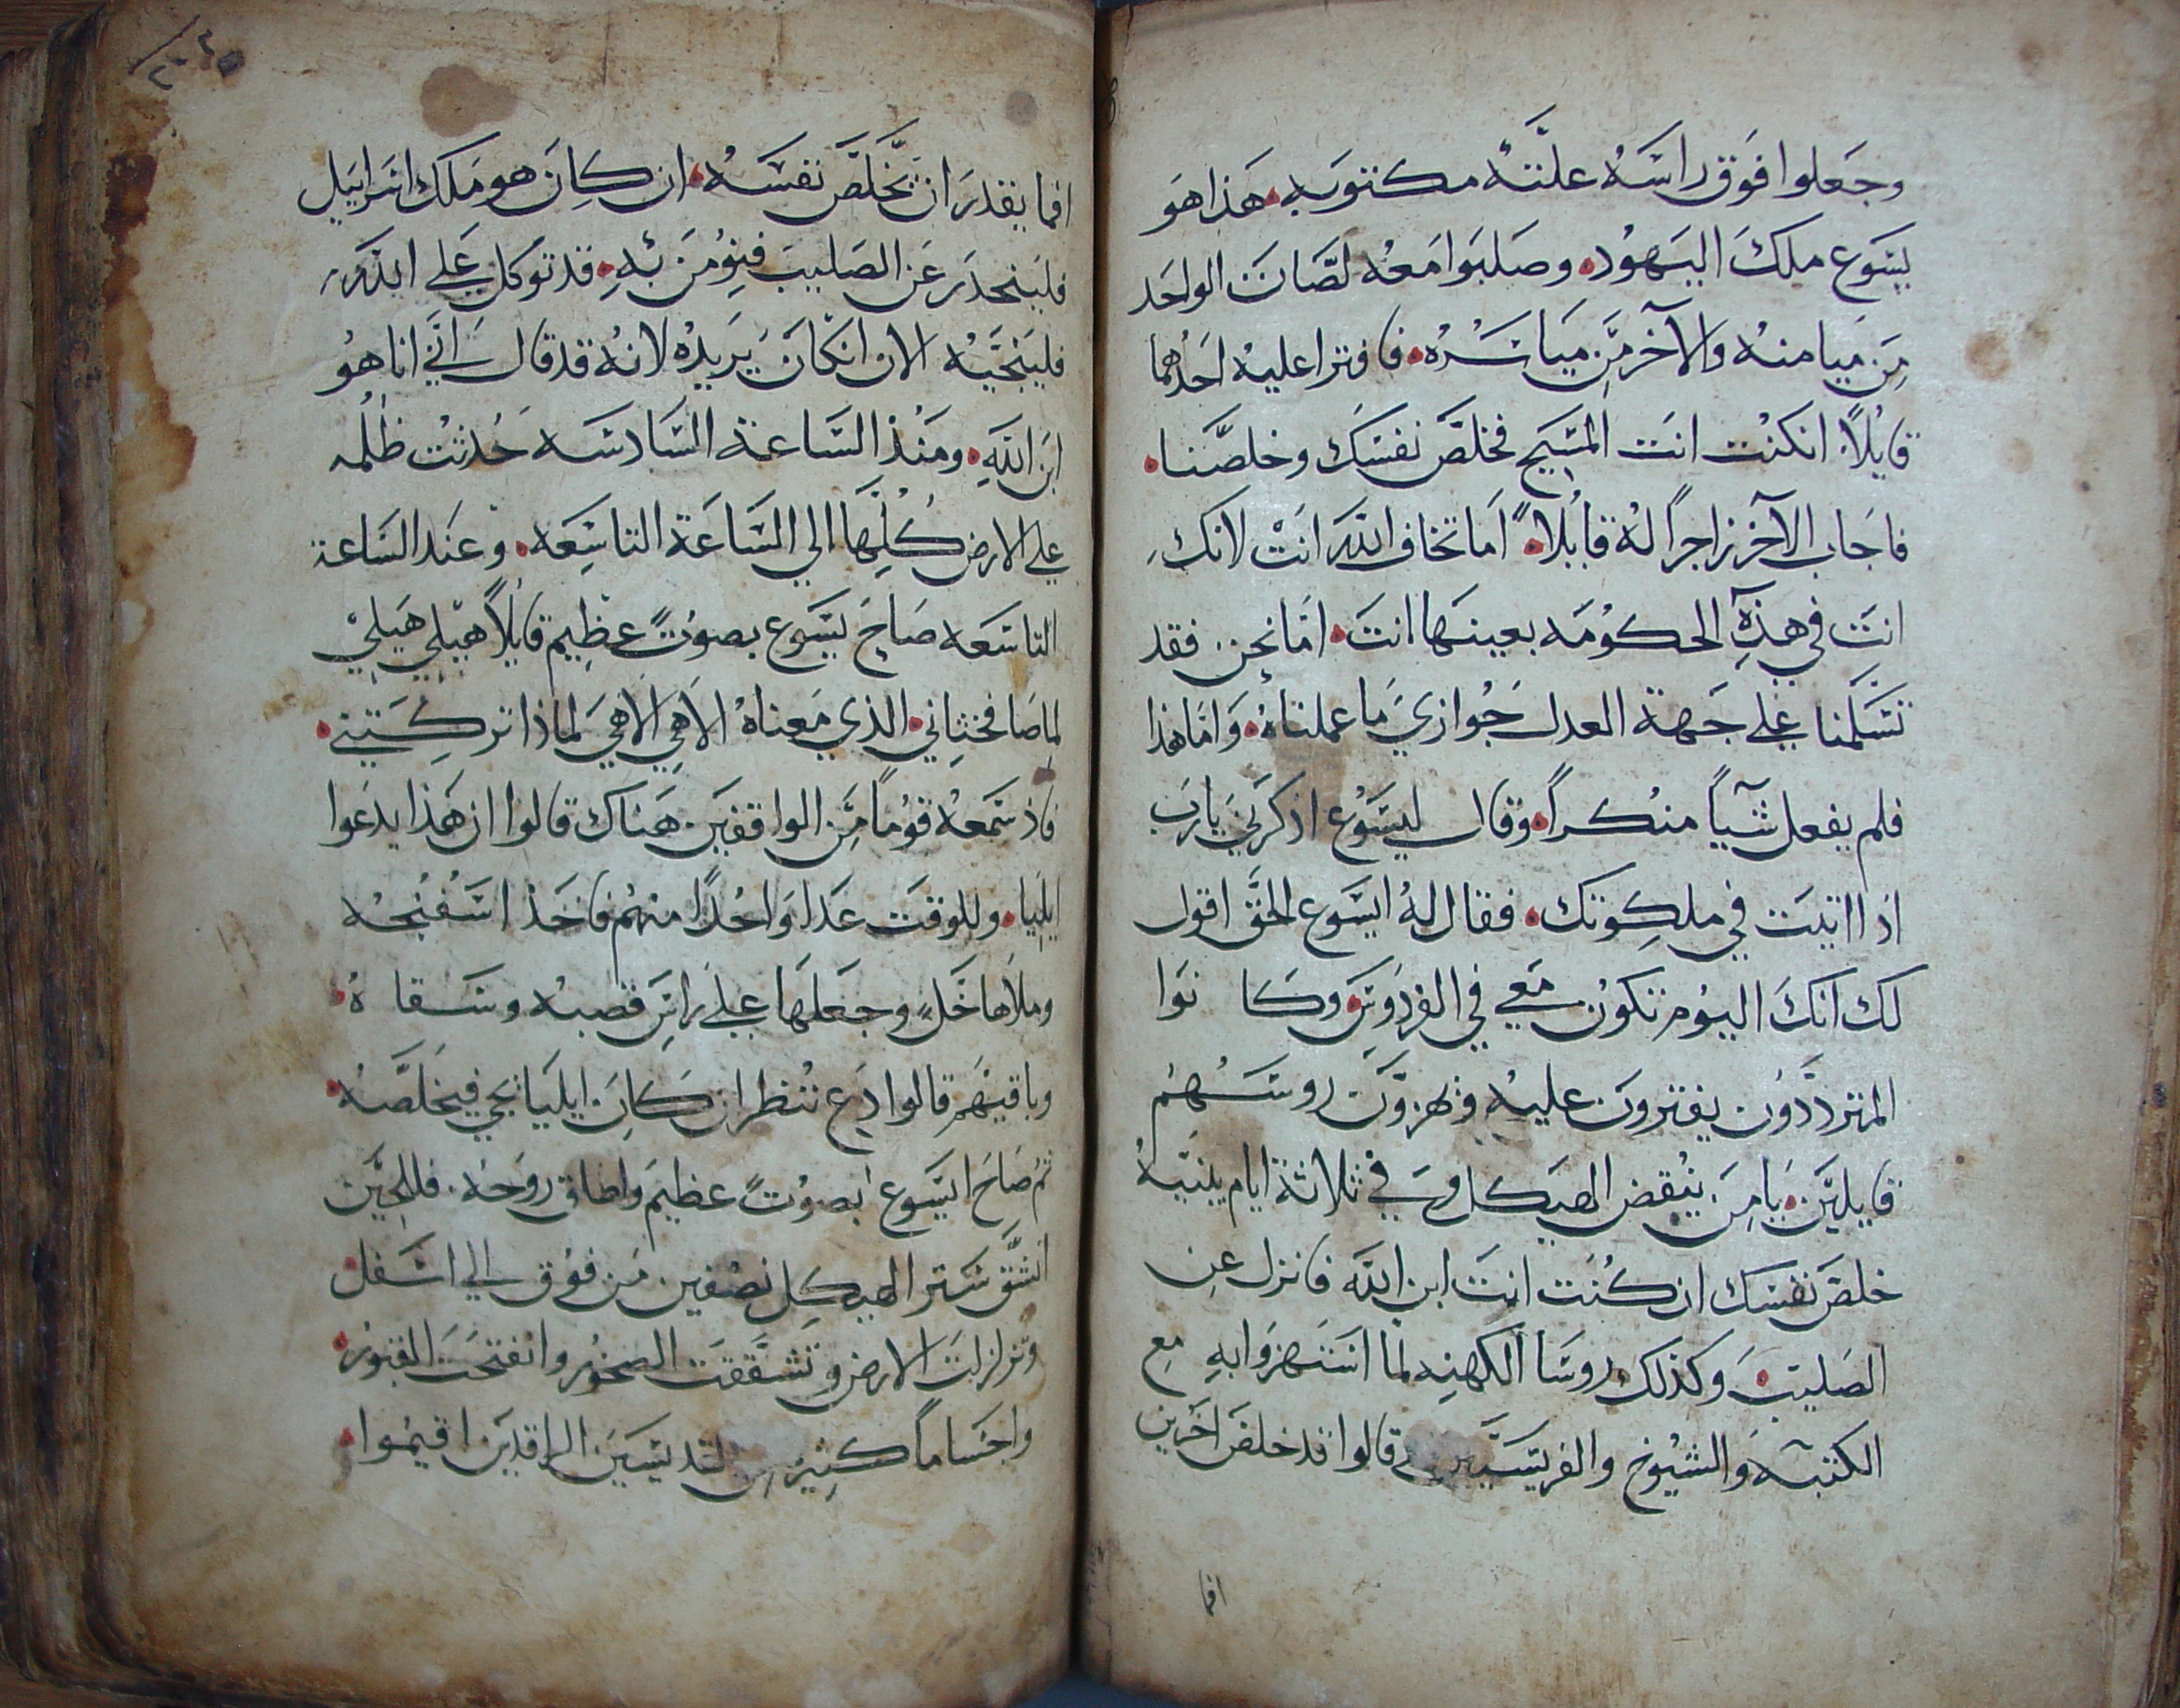 وجعلوا فوق راسه علته مكتوبه هذا هو
يسوع ملك اليهود وصلبوا معه لصان الواحد
من ميامنه والآخر من مياسره فافترا عليه احدهما
قايلاً انكنت انت المسيح فخلص نفسك وخلصنا
فاجاب الآخر زاجراً له قايلاً اما تخاف الله انت لانك
انت في هذه الحكومه بعينها انت اما نحن فقد
تسلمنا علي جهة العدل جوازي ما عملناه واما هذا
فلم يفعل شياً منكراً وقال ليسوع اذكرني يارب
اذا اتيت في ملكوتك فقال له ايسوع الحق اقول
لك انك اليوم تكون معي في الفردوس وكانوا
المترددون يفترون عليه ويهزون روسهم
قايلين يا من ينقض الهيكل وفي ثلاثة ايام يبنيه
خلص نفسك ان كنت انت ابن الله فانزل عن
الصليب وكذلك روسا الكهنه لما استهزوا به مع
الكتبه والشيوخ والفريسيين قالوا قد خلص اخرين
افما
افما يقدر ان يخلص نفسه ان كان هو ملك اسراييل
فلينحدر عن الصليب فنومن به قد توكل علي الله
فلينجيه الان انكان يريده لانه قد قال انني انا هو
ابن الله ومنذ الساعة السادسه حدثت ظلمه
علي الارض كلها الي الساعة التاسعه وعند الساعة
التاسعه صاح يسوع بصوت عظيم قايلاً هيلي هيلي
لماصا فختاني الذي معناه الاهي الاهي لماذا تركتني
فاذ سمعه قوماً من الواقفين هناك قالوا ان هذا يدعوا
ايليا وللوقت عدا واحداً منهم فاخذ اسفنجه
وملاها خل وجعلها علي راس قصبه وسقاه
وباقيهم قالوا دع ننظر ان كان ايليا يجي فيخلصه
ثم صاح ايسوع بصوت عظيم واطاق روحه فللحين
انشق ستر الهيكل نصفين من فوق الي اسفل
وتزلزلت الارض وتشققت الصخور وانفتحت القبور
واجساماً كثيره القديسين الراقدين اقيموا